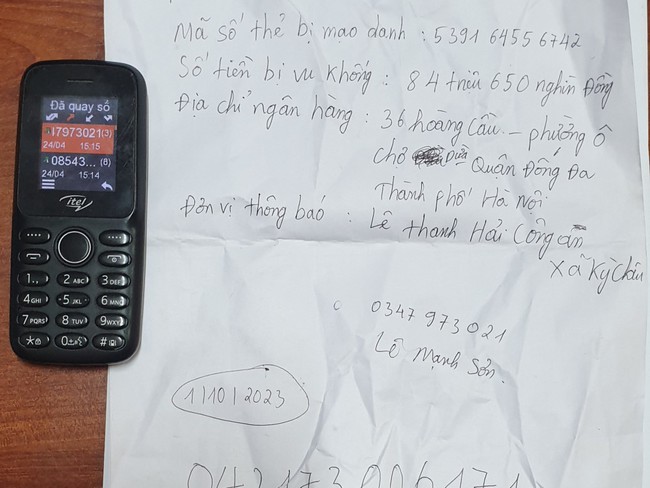 Đã quay số
47973021(3)
24/04 15:15
08543...(8)
24/04 15:14
itel
1.,
2 ABC
3 DEF
4 GHI
5 JKL
6 MNO
7 PQRS
8 TUV
9 WXYZ
*
0
#
Mã số thẻ bị mạo danh : 5391 6455 6742
Số tiền bị vu khống : 84 triệu 650 nghìn Đồng
Địa chỉ ngân hàng : 36 hoàng Cầu - phường ô
chợ Dừa Quận Đống Đa
Thành phố Hà Nội
Đơn vị thông báo : Lê thanh Hải Công an
xã Kỳ Châu
0347 973 021
Lê Mạnh Sơn.
1|10|2023